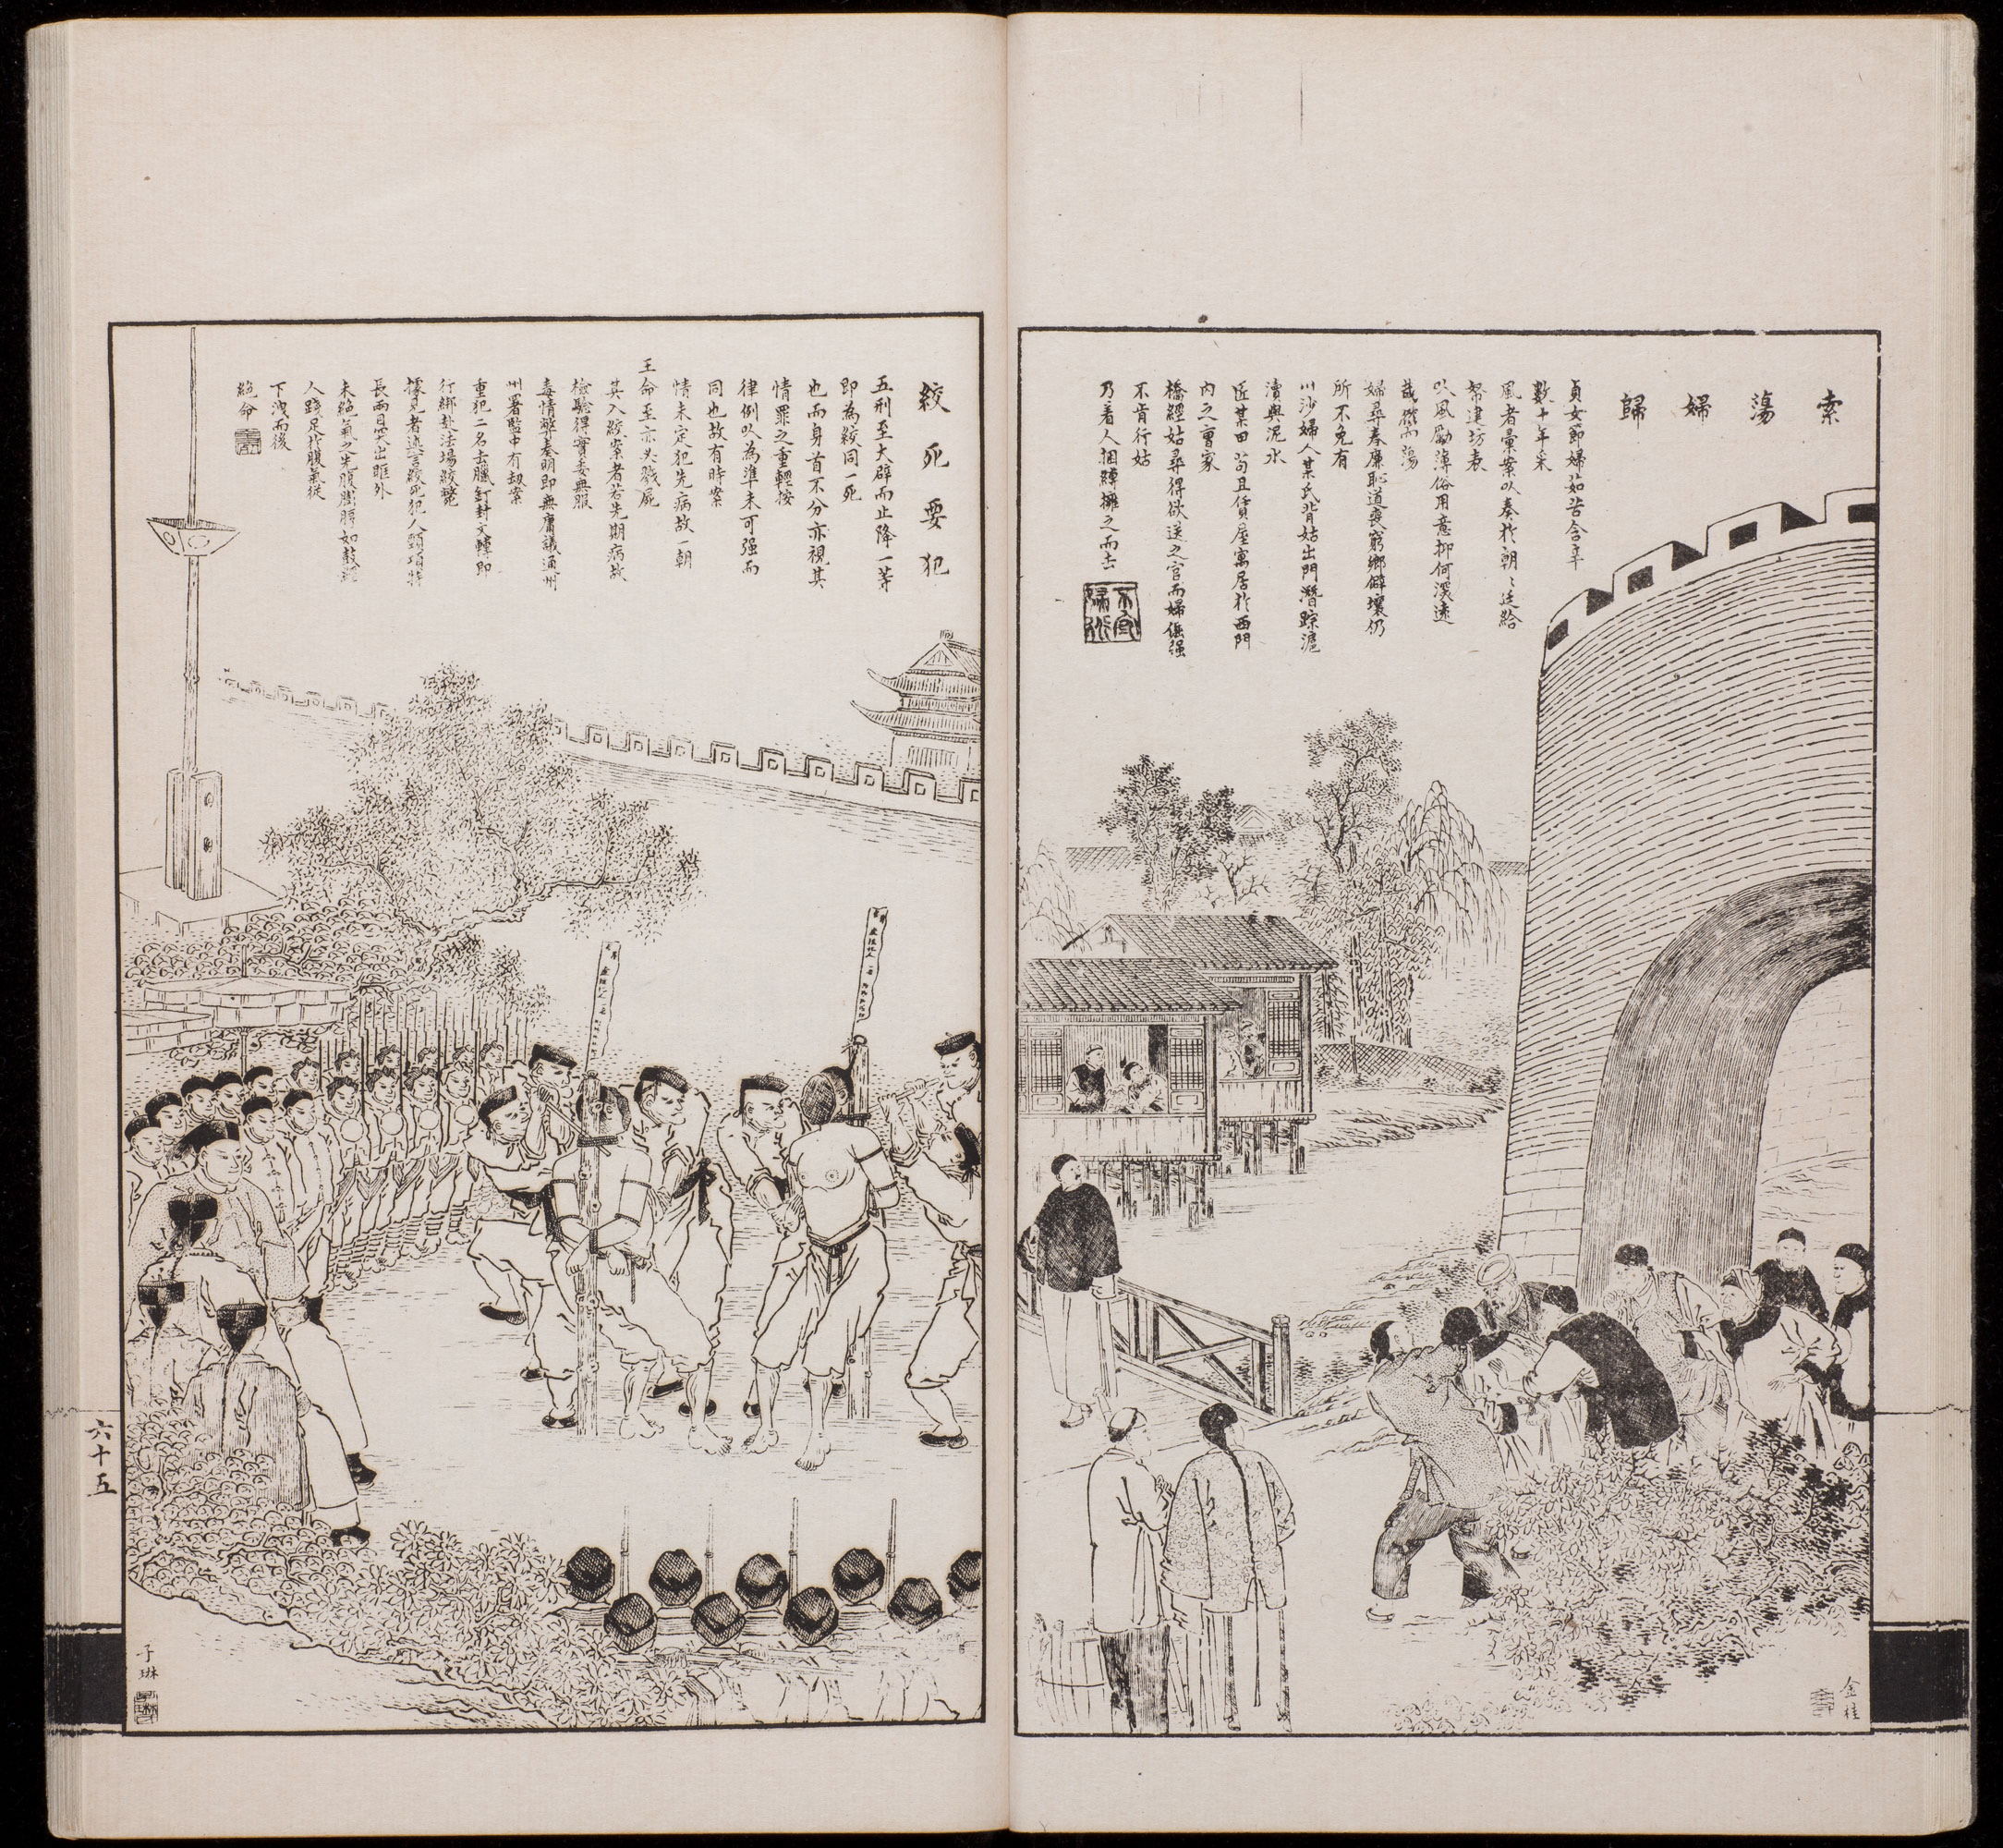 索蕩婦歸
貞女節婦茹苦含辛
數十年采
風者彙案以奏於朝〻廷給
帑建坊表
以風勵薄俗用意抑何深遠
哉然而蕩
婦尋春廉恥道喪窮鄉僻壤仍
所不免有
川沙婦人某氏背姑出門潛踪滬
瀆與泥水
匠某田苟且賃屋寓居於西門
內之曹家
橋經姑尋得欲送之官而婦倔强
不肯行姑
乃着人捆縛擁之而去
金桂
絞死要犯
五刑至大辟而止降一等
即為絞同一死
也而身首不分亦視其
情罪之重輕按
律例以為準未可强而
同也故有時案
情未定犯先病故一朝
王命至亦必戮屍
其入絞案者若先期病故
檢驗得實委無服
毒情弊奏明即無庸議通州
州署監中有刼案
重犯二名去臘釘封文轉即
行綁赴法場絞斃
據見者述言絞死犯人頸項特
長兩目突出眶外
未絕氣之先腹膨脝如鼓
人踐足於腹氣從
下洩而後
絕命
子琳
六十五